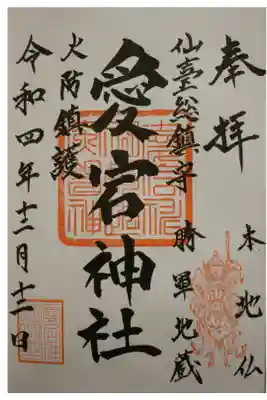 奉拝
本地仏
仙臺総鎮守 勝軍地蔵
愛宕神社
火防鎮護
令和四年十二月十二日